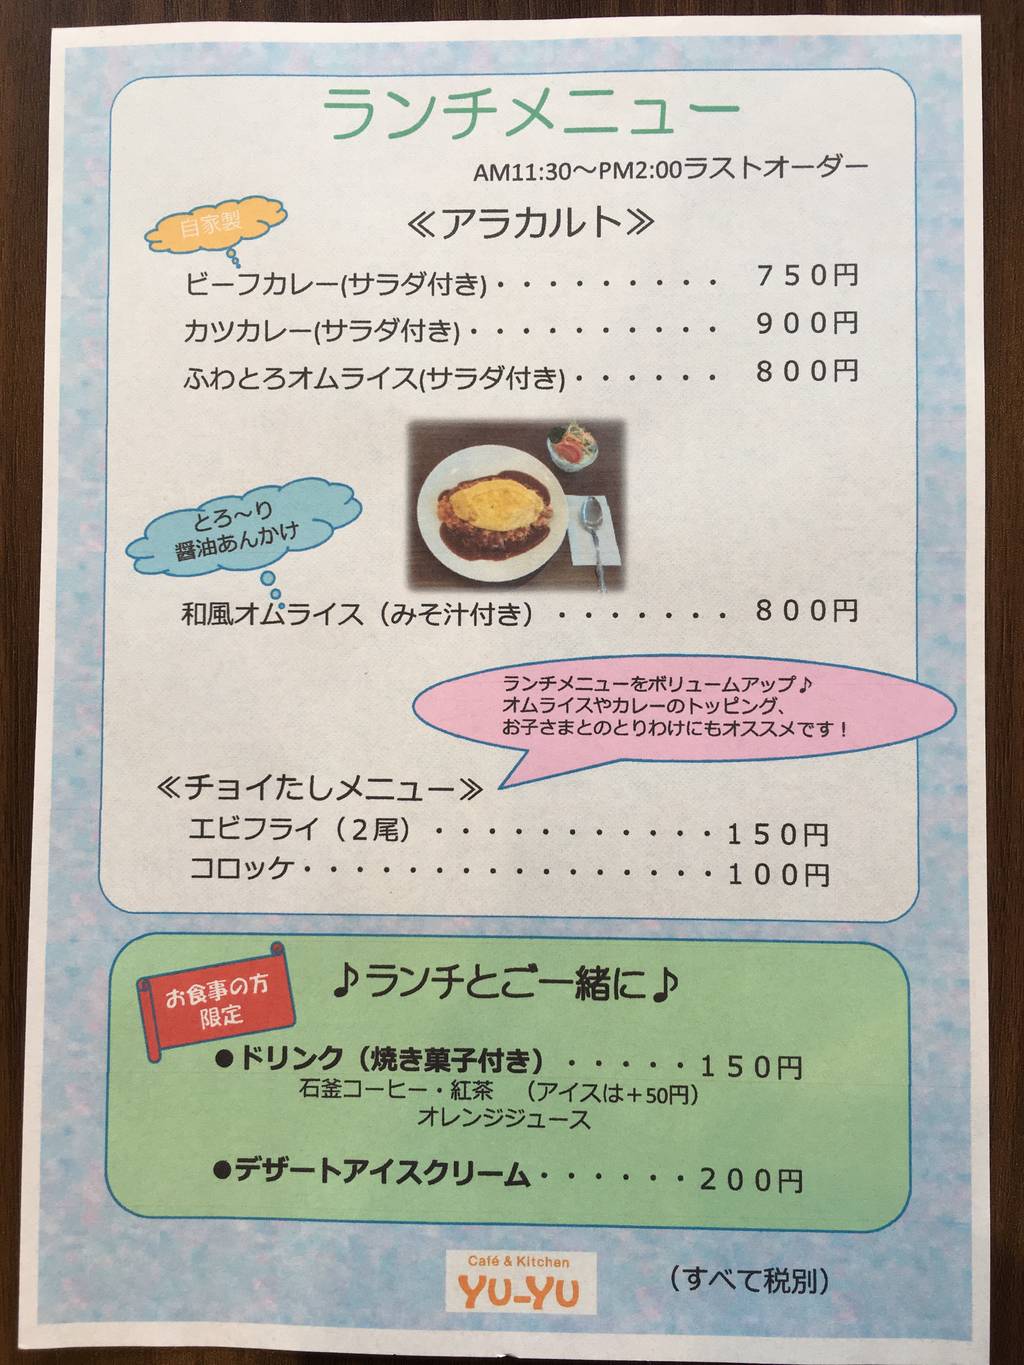 ランチメニュー
AM11:30～PM2:00ラストオーダー
自家製
≪アラカルト≫
ビーフカレー(サラダ付き)・・・・・・・・・ ７５０円
カツカレー(サラダ付き)・・・・・・・・・・ ９００円
ふわとろオムライス(サラダ付き)・・・・・・ ８００円
とろ～り
醤油あんかけ
和風オムライス（みそ汁付き）・・・・・・・ ８００円
ランチメニューをボリュームアップ♪
オムライスやカレーのトッピング、
お子さまとのとりわけにもオススメです！
≪チョイたしメニュー≫
エビフライ（２尾）・・・・・・・・・・・１５０円
コロッケ・・・・・・・・・・・・・・・・１００円
お食事の方
限定
♪ランチとご一緒に♪
●ドリンク（焼き菓子付き）・・・・・１５０円
石釜コーヒー・紅茶　（アイスは＋50円）
オレンジジュース
●デザートアイスクリーム・・・・・・２００円
Café & Kitchen
YU-YU
（すべて税別）